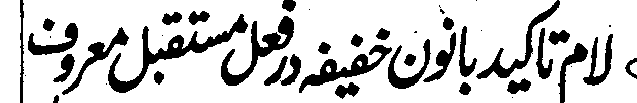 لام تاکید بانون خفیفہ در فعل مستقبل معروف